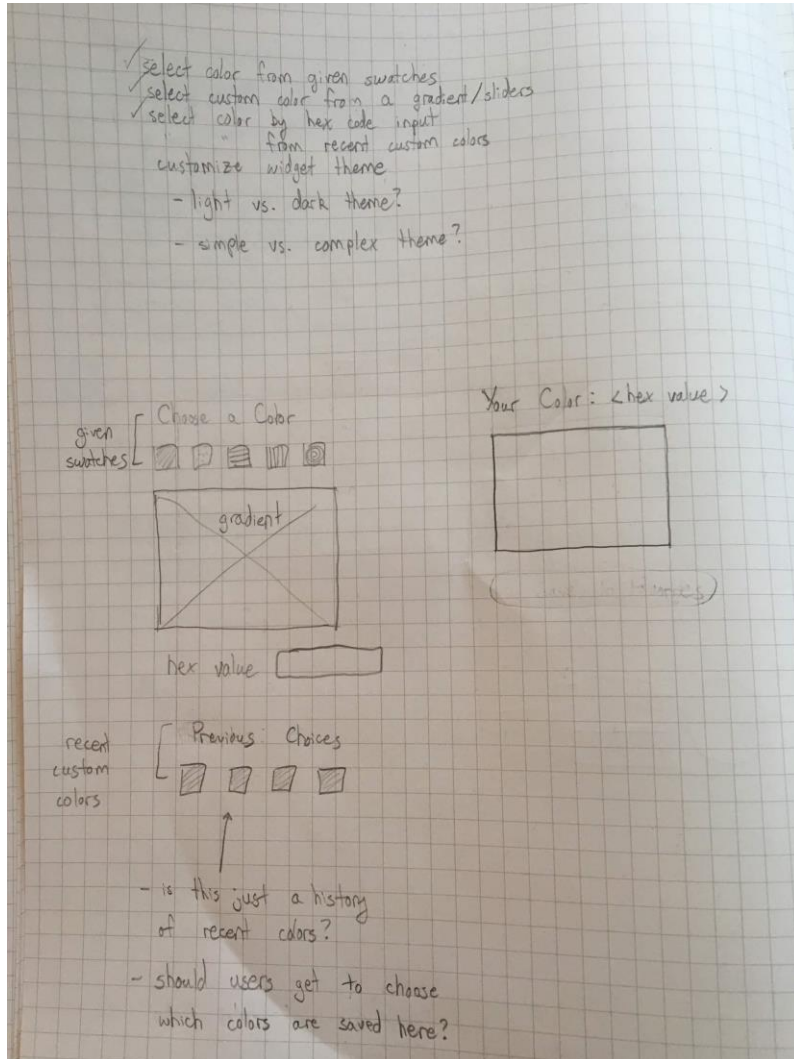 ✓ select color from given swatches
✓ select custom color from a gradient/sliders
✓ select color by hex code input
" " from recent custom colors
customize widget theme
- light vs. dark theme?
- simple vs. complex theme?
given
swatches
Choose a Color
gradient
hex value
Your Color: <hex value>
recent
custom
colors
Previous Choices
- is this just a history
of recent colors?
- should users get to choose
which colors are saved here?